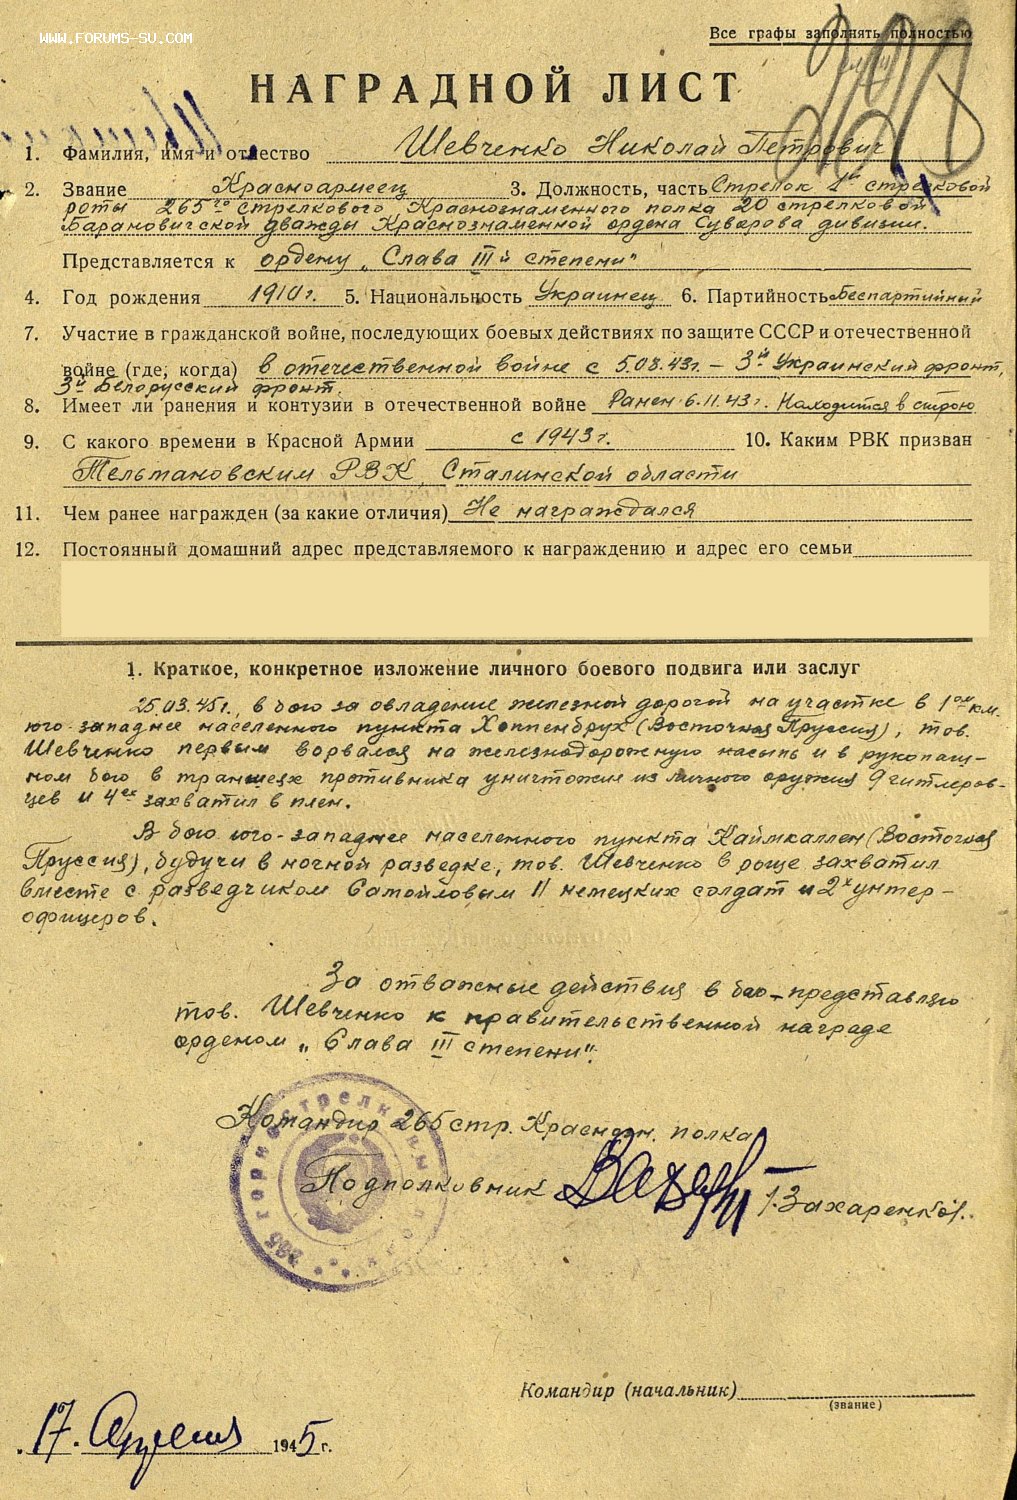 WWW.FORUMS-SU.COM
Все графы заполнять полностью
НАГРАДНОЙ ЛИСТ
1. Фамилия, имя и отчество Шевченко Николай Петрович
2. Звание Красноармеец 3. Должность, часть Стрелок 1й стрелковой
роты 265го стрелкового Краснознаменного полка 20 стрелковой
Барановичской дважды Краснознаменной ордена Суворова дивизии.
Представляется к ордену „Слава III й степени"
4. Год рождения 1910г. 5. Национальность Украинец 6. Партийность Беспартийный
7. Участие в гражданской войне, последующих боевых действиях по защите СССР и отечественной
войне (где, когда) в отечественной войне с 5.08.43г. – 3й Украинский фронт,
3й Белорусский фронт.
8. Имеет ли ранения и контузии в отечественной войне Ранен 6.11.43г. Находится в строю
9. С какого времени в Красной Армии с 1943г. 10. Каким РВК призван
Тельмановским РВК, Сталинской области
11. Чем ранее награжден (за какие отличия) Не награждался
12. Постоянный домашний адрес представляемого к награждению и адрес его семьи
1. Краткое, конкретное изложение личного боевого подвига или заслуг
25.03.45г., в бою за овладение железной дорогой на участке в 1ом км.
юго-западнее населенного пункта Хоппенбрух (Восточная Пруссия), тов.
Шевченко первым ворвался на железнодорожную насыпь и в рукопаш-
ном бою в траншеях противника уничтожил из личного оружия 9 гитлеров-
цев и 4ех захватил в плен.
В бою юго-западнее населенного пункта Каймкаллен (Восточная
Пруссия), будучи в ночной разведке, тов. Шевченко в роще захватил
вместе с разведчиком Самойловым 11 немецких солдат и 2х унтер-
офицеров.
За отважные действия в бою – представляю
тов. Шевченко к правительственной награде
орденом „Слава III степени".
Командир 265 стр. Краснозн. полка
Подполковник /Захаренко/.
Командир (начальник)
(звание)
17. Апреля 1945 г.